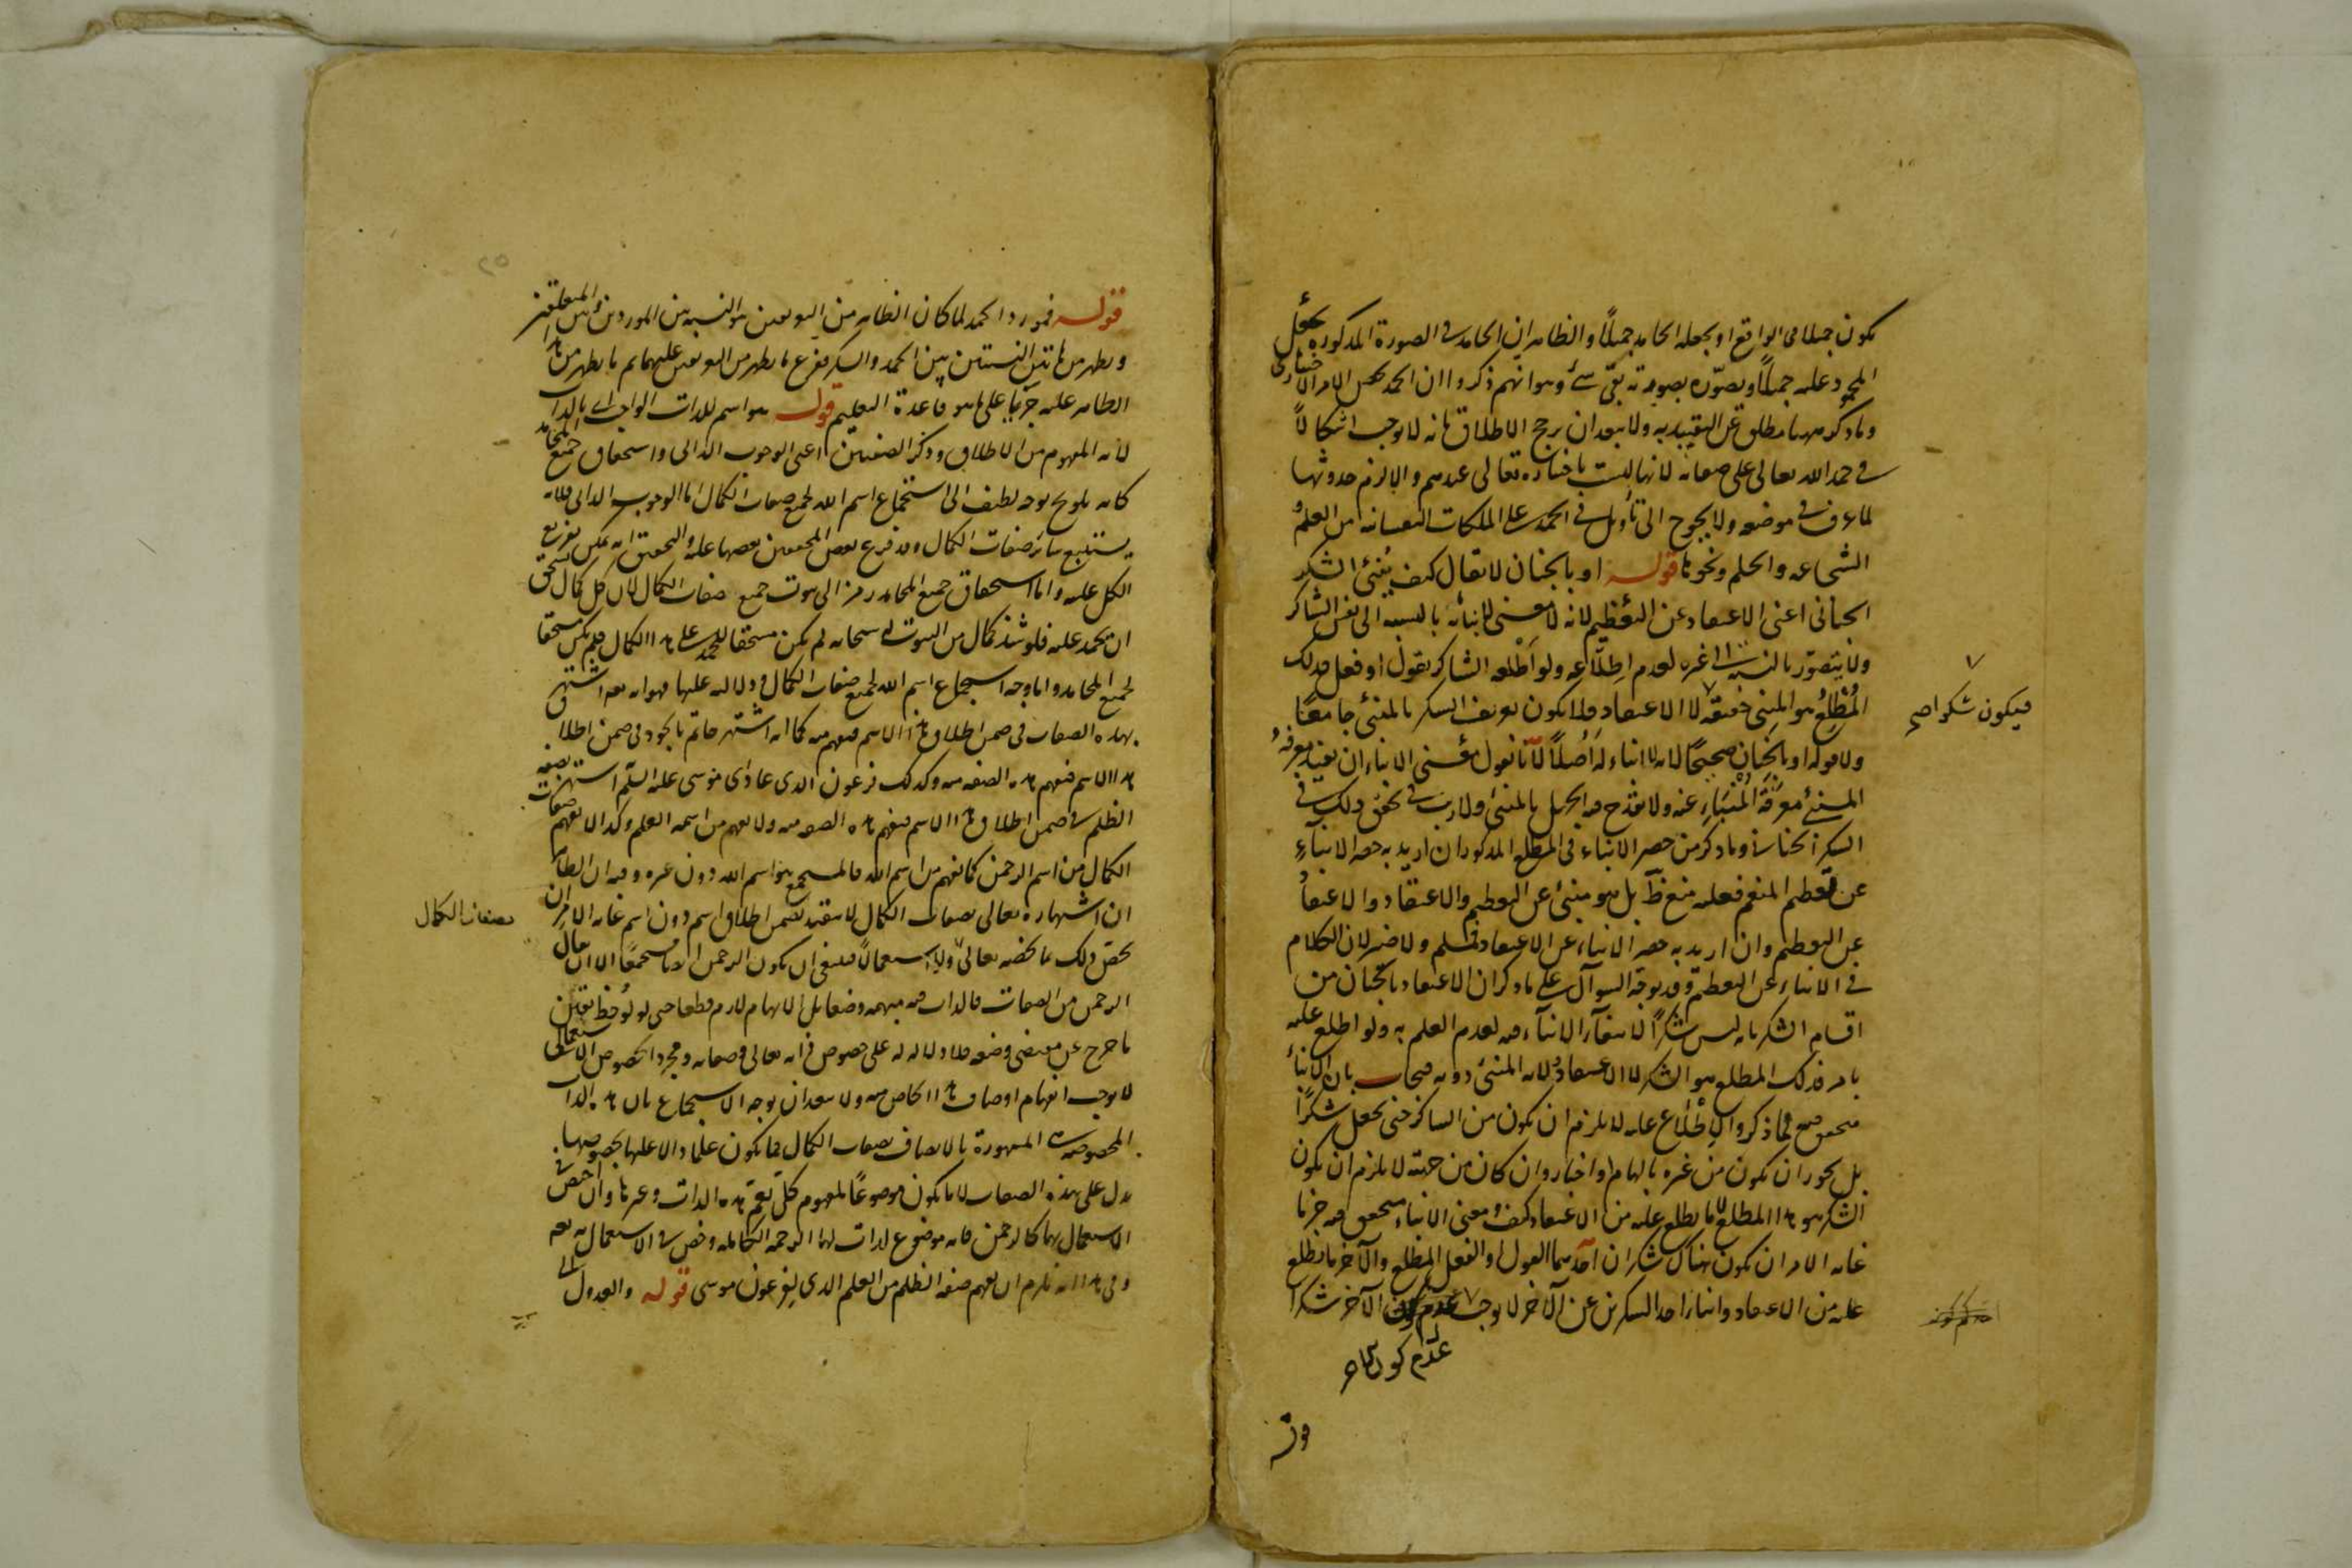 يكون جميلا في الواقع او يجعله الحامد جميلاً والظاهر ان الحامد في الصورة المذكورة يجعل
المحمود عليه جميلاً ويصوّره بصورته بقي شئ وهو انهم ذكروا ان الحمد يخص الامر الاختياري
وما ذكر ههنا مطلق عن التقييد به ولا يبعد ان يرجح الاطلاق فانه لا يوجب اشكالاً
في حمد الله تعالى على صفاته لانها ليست باختياره تعالى عندهم والا لزم حدوثها
لما عرف في موضعه ولا يحوج الى تأويل في الحمد على الملكات النفسانية من العلم و
الشجاعه والحلم ونحوها قوله او بالجنان لا يقال كيف يُنبئ الشكر
الجناني اعنى الاعتقاد عن التعظيم لانه لا معنى لإنبائه بالنسبه الى نفس الشاكر
ولا يتصوّر بالنسبه الى غيره لعدم اطلاعه ولو أطلعه الشاكر بقول او فعل فذلك
المُطْلِعُ هو المنبئ حقيقة لا الاعتقاد فلا يكون تعريف الشكر بالمنبئ جامعًا
فيكون شكرا صح
ولا قوله او بالجنان صحيحًا لانه لا انباء له أصلاً لانا نقول معنى الانباء ان يفيد معرفةُ
المنبئ معرفةَ المُنْبَاءِ عنه ولا يقدح فيه الجهل بالمنبئ ولا ريب في تحقق ذلك في
الشكر الجناني وما ذكر من حصر الانباء في المطلع المذكور ان اريد به حصر الانباءِ
عن تعظيم المنعم فعليه منع ظ بل هو منبئ عن التعظيم والاعتقاد والاعتقادُ
عن التعظيم وان اريد به حصر الانباء عن الاعتقاد فمسلم ولا ضير لان الكلام
في الانباء عن التعظيم وقد يوجّه السوآل على ما ذكر ان الاعتقاد بالجنان من
اقسام الشكر بانه ليس شكراً لانتفآء الانبآء فيه لعدم العلم به ولو اطلع عليه
بامر فذلك المطلع هو الشكر لا الاعتقاد لانه المنبئ دونه فيجاب بان الانباءَ
متحقق مع فيما ذكر والاطلاع عليه لا يلزم ان يكون من الشاكر حتى يجعل شكراً
بل يجوز ان يكون من غيره بالهام او اخبار وان كان من جهته لا يلزم ان يكون
الشكر هو هذا المطلع لا ما يطلع عليه من الاعتقاد كيف ومعنى الانباء متحقق فيه جزما
غايه الامر ان يكون هناك شكران احدهما القول او الفعل المطلع والآخر ما يطلع
عليه من الاعتقاد وانباء احد الشكرين عن الآخر لا يوجب الآخر شكرا
عدم كون
قوله
قوله فمورد الحمد لما كان الظاهر من التعريفين هو النسبه بين الموردين وبين المتعلقين
ويظهر من هاتين النسبتين بين الحمد والشكر فرع ما يظهر من التعريفين عليهما ثم ما يظهر من هذا
الظاهر عليه جريا على ما هو قاعدة التعليم قوله هو اسم للذات الواجب اى بالذات
لانه المفهوم من الاطلاق وذكر الصفتين اعنى الوجوب الذاتى واستحقاق جميع المحامد
كانه يلوح بوجه لطيف الى استجماع اسم الله لجميع صفات الكمال اما الوجوب الذاتى فلانه
يستتبع سائر صفات الكمال وقد فرع بعض المحققين بعضها عليه والتحقيق انه يمكن تفريع
الكل عليه واما استحقاق جميع المحامد رمز الى ثبوت جميع صفات الكمال لان كل كمال يستحق
ان يحمد عليه فلو شذ كمال من الثبوت له سبحانه لم يكن مستحقا للحمد على هذا الكمال فلم يكن مستحقا
لجميع المحامد واما وجه استجماع اسم الله لجميع صفات الكمال ودلالته عليها فهو انه تعه اشتهر
بهذه الصفات في ضمن اطلاق هذا الاسم فيفهم منه كما انه اشتهر حاتم بالجود في ضمن اطلاق
هذا الاسم فيفهم هذه الصفة منه وكذلك فرعون الذى عادى موسى عليه السلم اشتهر بصفة
الظلم في ضمن اطلاق هذا الاسم فيفهم هذه الصفه منه ولا يفهم من اسمه العلم وكذا لا يفهم صفات
الكمال من اسم الرحمن كما يفهم من اسم الله فالمستجمع هو اسم الله دون غيره وفيه ان الظاهر
ان اشتهاره تعالى بصفات الكمال لا يتقيد بضمن اطلاق اسم دون اسم غايه الامر ان
بصفات الكمال
يختص ذلك بما يخصه تعالى ولو استعمالاً فينبغى ان يكون الرحمن ايضا مستجمعًا الا ان يقال
الرحمن من الصفات فالذات فيه مبهمه وضعا بل الابهام لازم قطعا حتى لو لوحظ تعيّن
ما خرج عن مقتضى وضعه فلا دلاله له على خصوص ذاته تعالى وصفاته ومجرد الخصوص الاستعمالى
لا يوجب انفهام اوصاف هذا الخاص منه ولا يبعد ان يوجه الاستجماع بان هذه الذات
المخصوصه المشهورة بالاتصاف بصفات الكمال فما يكون علما دالا عليها بخصوصها
يدل على هذه الصفات لا ما يكون موضوعًا لمفهوم كلى يعم هذه الذات وغيرها وان اختص في
الاستعمال بها كالرحمن فانه موضوع لذات لها الرحمه الكامله وخص في الاستعمال به تعه
وفى هذا انه يلزم ان يفهم صفه الظلم من العلم الذى لفرعون موسى قوله والعدول الى